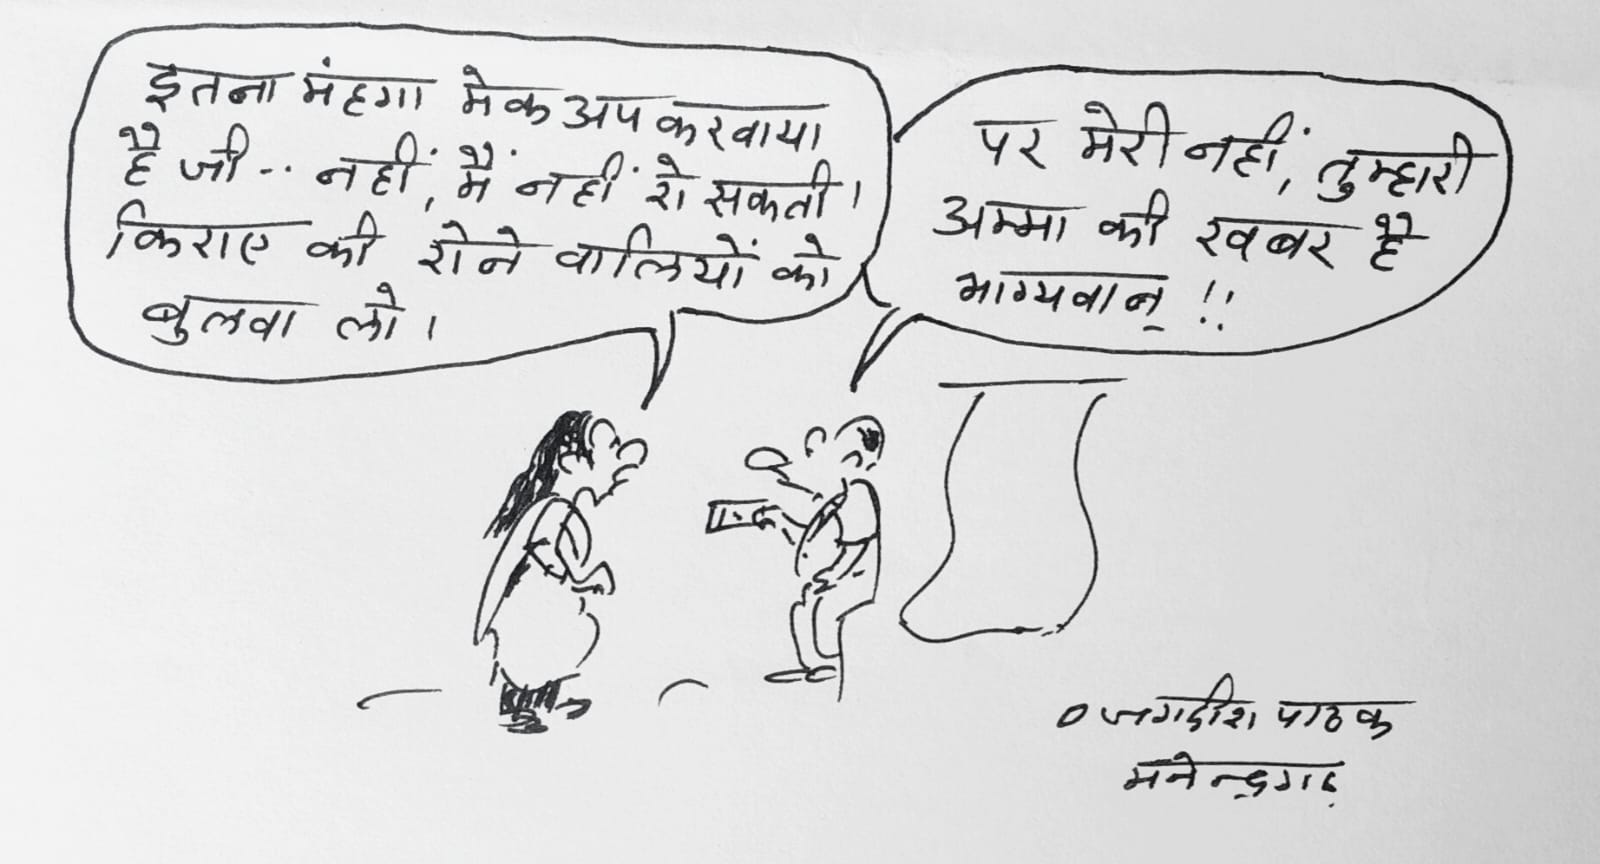 इतना मंहगा मेकअप करवाया
है जी -·· नहीं, मैं नहीं रो सकती।
किराए की रोने वालियों को
बुलवा लो।
पर मेरी नहीं, तुम्हारी
अम्मा की खबर है
भाग्यवान् !!
जगदीश पाठक
मनेन्द्रगढ़